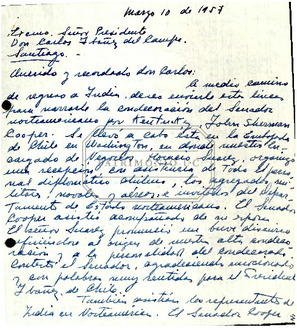 Marzo 10 de 1957
Excmo. Señor Presidente
Don Carlos Ibáñez del Campo.
Santiago.-
Querido y recordado don Carlos:
A medio camino
de regreso a India, deseo enviarle estas líneas
para narrarle la condecoración del Senador
norteamericano por Kentucky, John Sherman
Cooper. Se llevó a cabo ésta en la Embajada
de Chile en Washington, en donde nuestro En-
cargado de Negocios, Horacio Suárez, organizó
una recepción, con asistencia de todo el per-
sonal diplomático chileno, los agregados mi-
litares, navales y aéreos, e invitados del Depar-
tamento de Estado norteamericano. El Senador
Cooper asistió acompañado de su esposa.
El señor Suárez pronunció un breve discurso
refiriéndose al origen de nuestra alta condeco-
ración y a la personalidad del condecorado.
Contestó el Senador, agradeciendo emocionado
y con palabras muy sentidas para el Presidente
Ibáñez de Chile.
También asistieron los representantes de
India en Norteamérica. El Senador Cooper